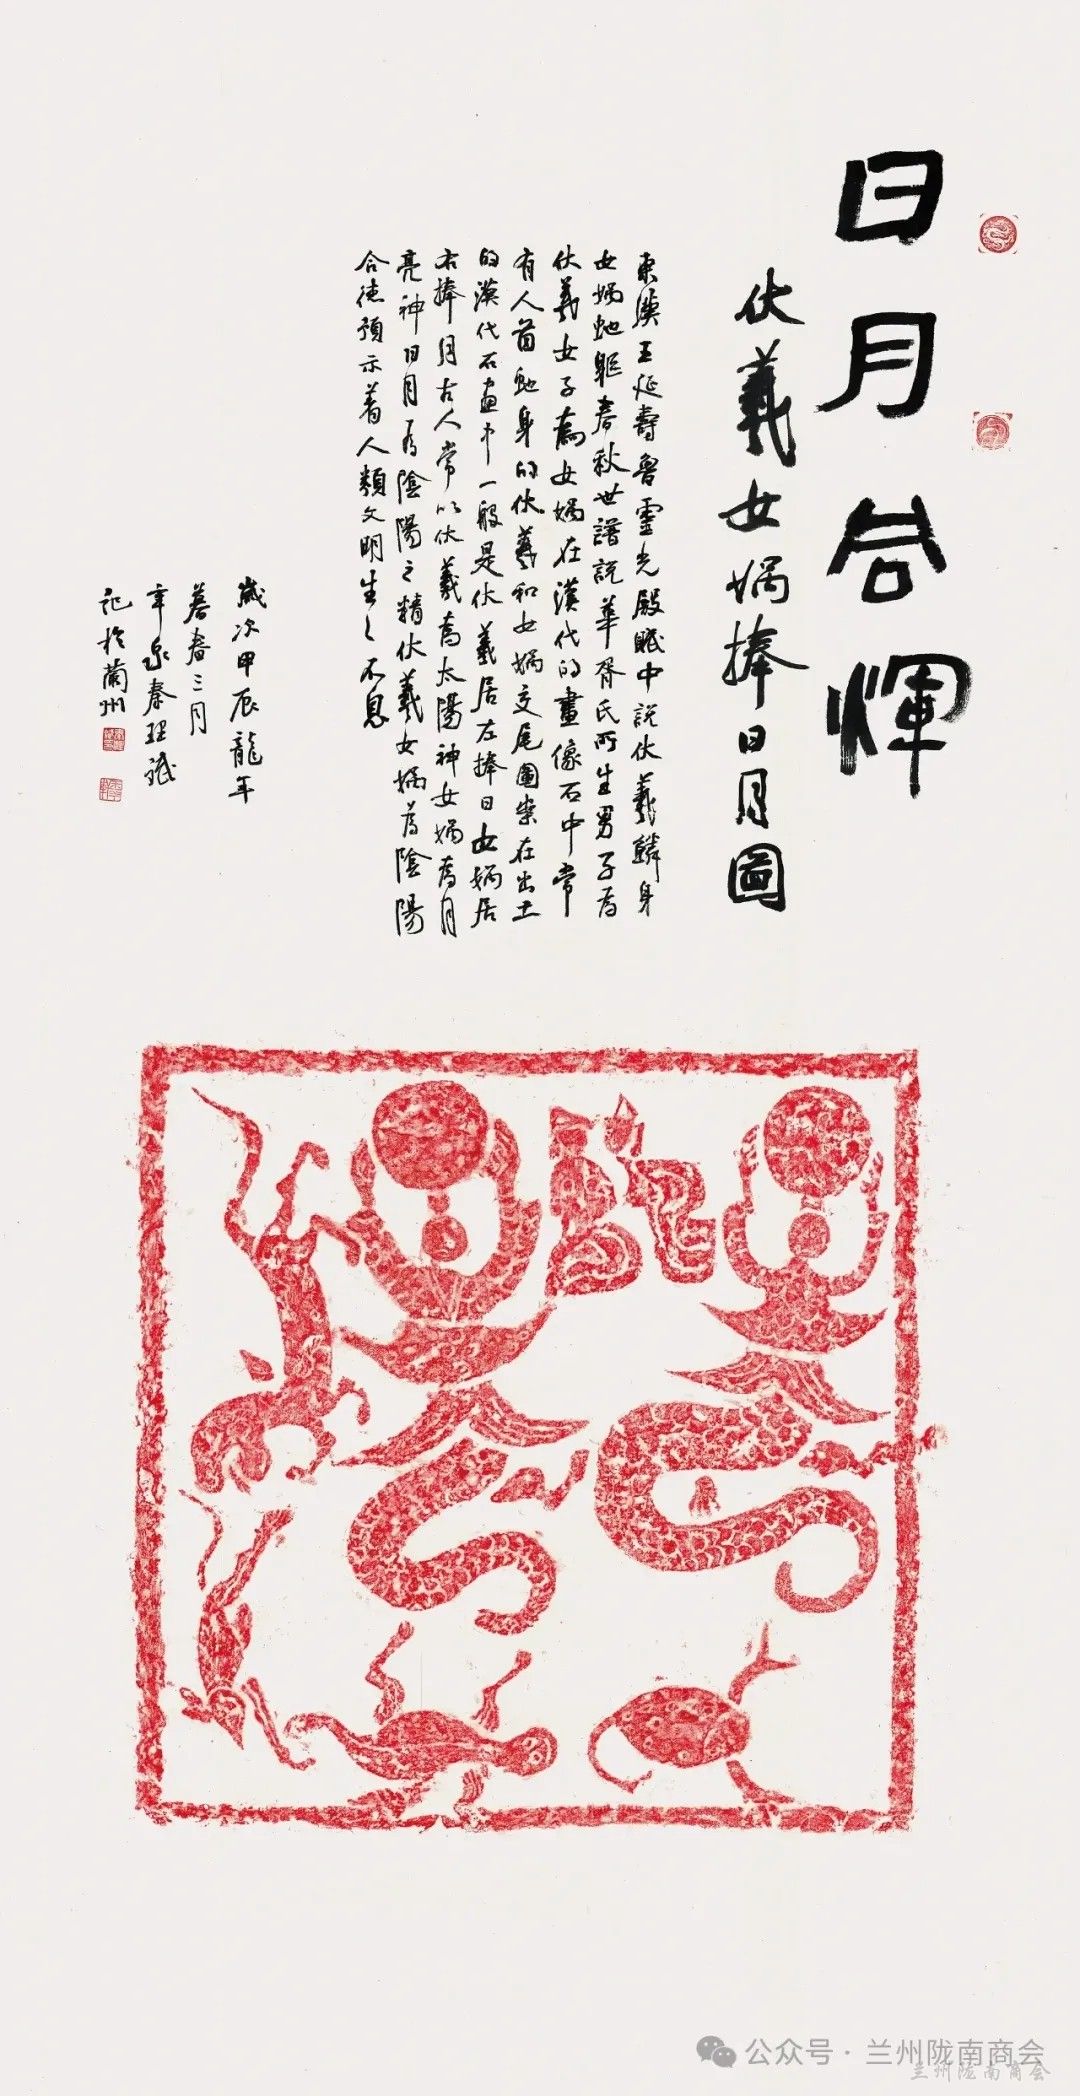 日月合煇
伏羲女媧捧日月圖
東漢王延壽魯靈光殿賦中説伏羲鱗身
女媧蛇軀春秋世譜説華胥氏所生男子為
伏羲女子為女媧在漢代的畫像石中常
有人首蛇身的伏羲和女媧交尾圖案在出土
的漢代石畫中一般是伏羲居左捧日女媧居
右捧月古人常以伏羲為太陽神女媧為月
亮神日月為陰陽之精伏羲女媧為陰陽
合德預示着人類文明生〻不息
歲次甲辰龍年
暮春三月
辛泉秦理斌
記於蘭州
公众号·兰州陇南商会
兰州陇南商会